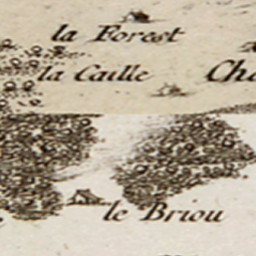 la Forest
la Caille
Cha
le Briou